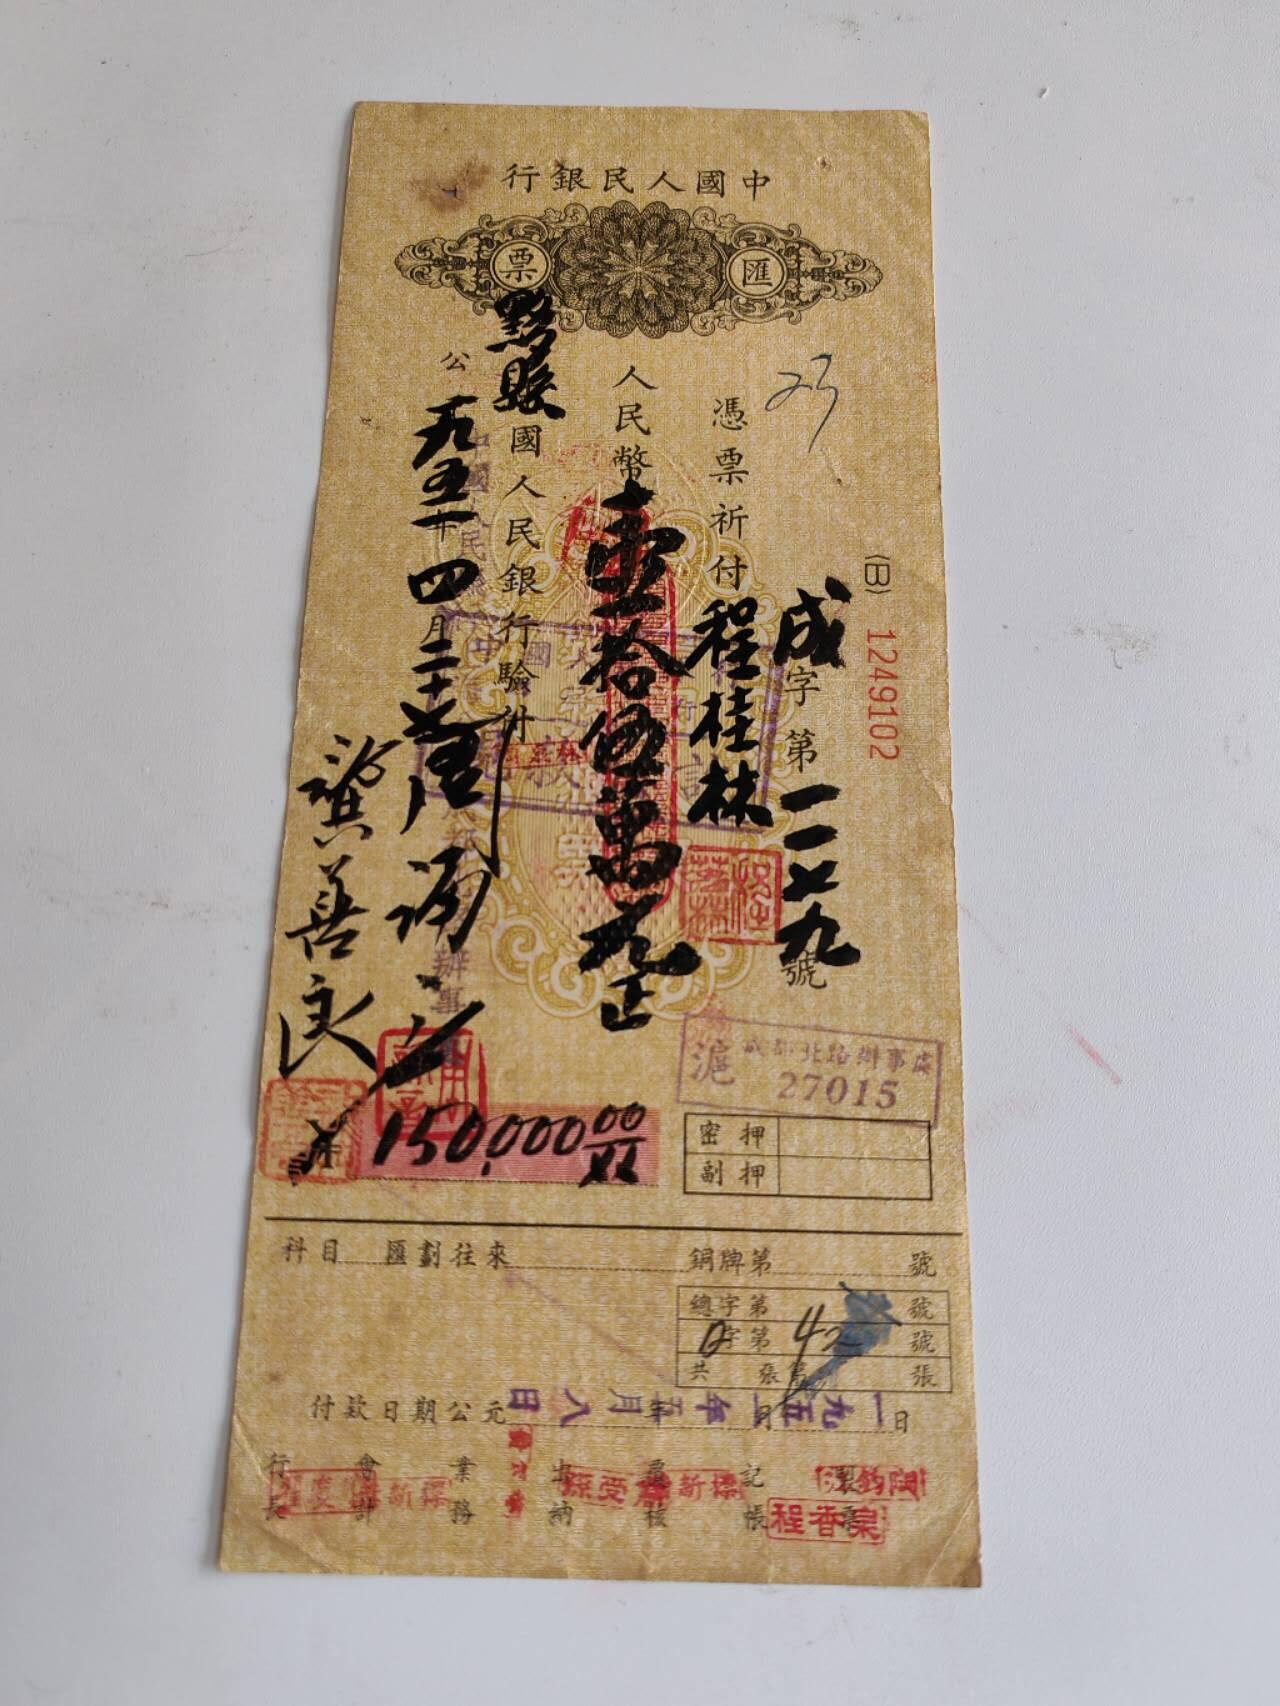 中國人民銀行
匯票
(B) 1249102
成字第一一七九號
憑票祈付程桂林
人民幣壹拾伍萬元正
黟縣國人民銀行驗付
公一九五一年四月二十
龔善良
滬 成都北路辦事處
27015
150,000 00
密押
副押
科目 匯劃往來
銅牌第 號
總字第 號
字第 42 號
共 張第 張
付款日期公元 年 月 日
一九五一年五月八日
行長 會計 業務 出納 覆核 記帳
程香泉